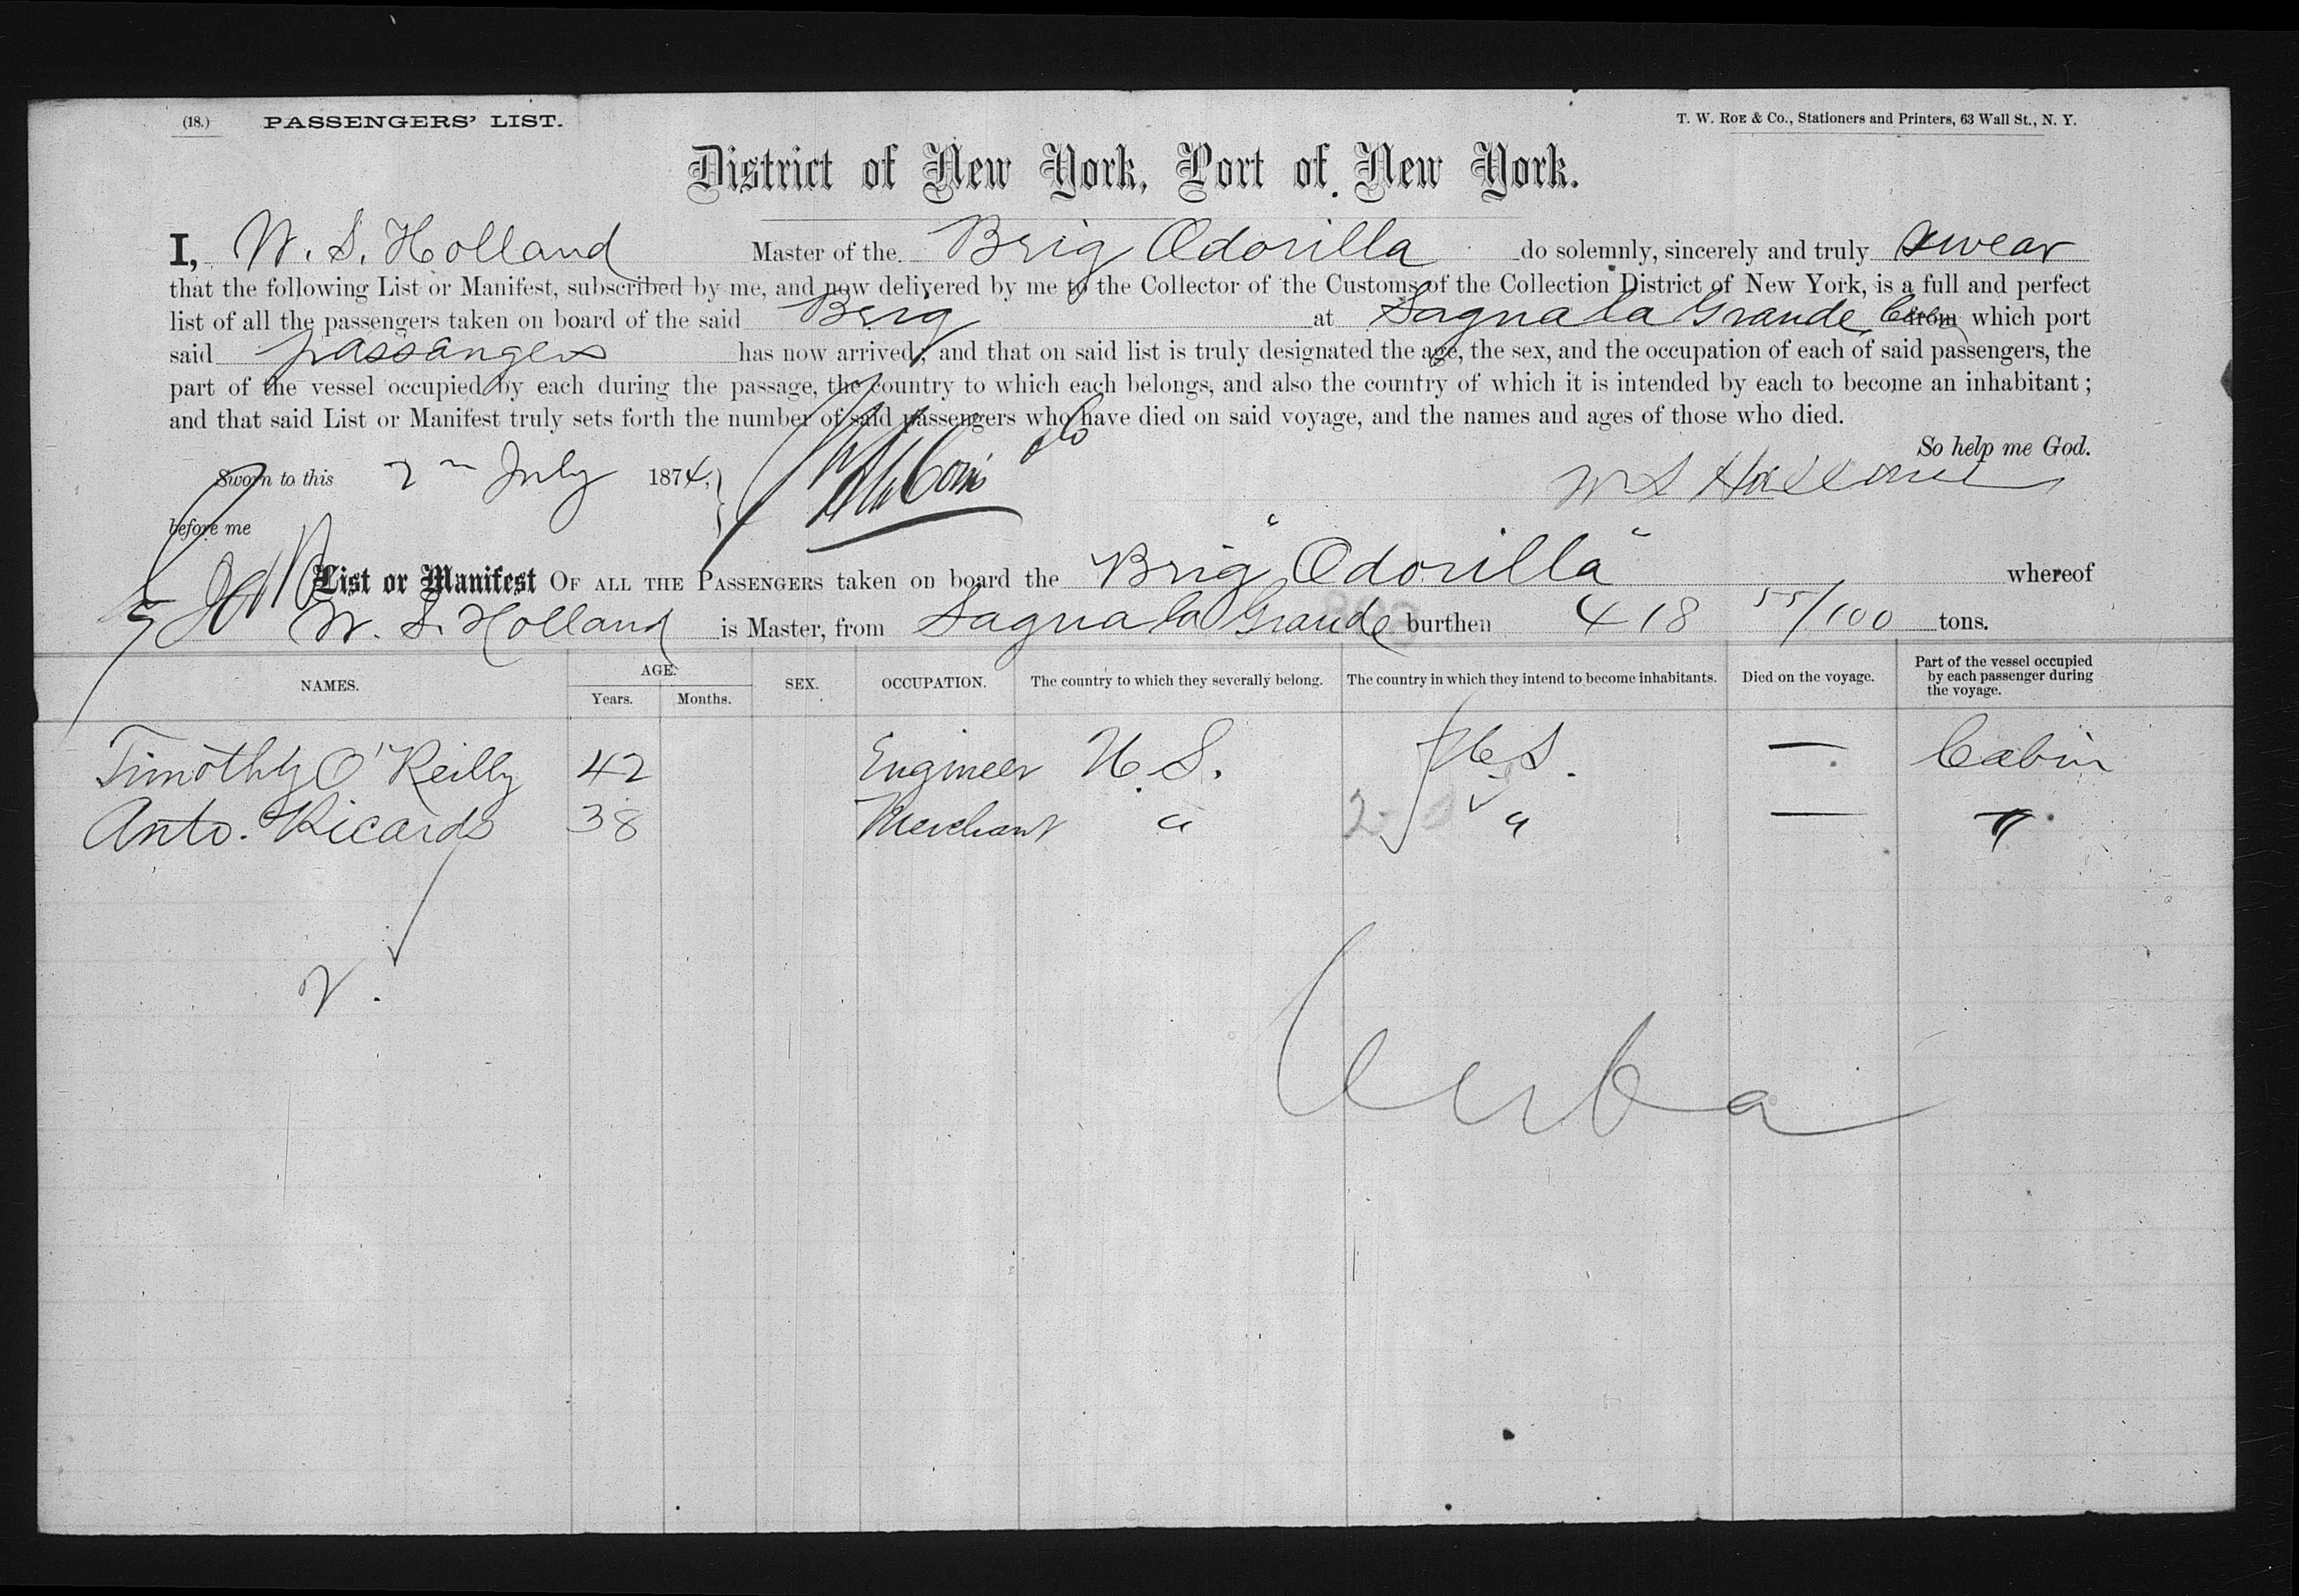 (18.) PASSENGERS' LIST. T. W. ROE & Co., Stationers and Printers, 63 Wall St., N. Y.
District of New York, Port of New York.
I, W. S. Holland Master of the Brig Odorilla do solemnly, sincerely and truly swear
that the following List or Manifest, subscribed by me, and now delivered by me to the Collector of the Customs of the Collection District of New York, is a full and perfect
list of all the passengers taken on board of the said Brig at Sagua la Grande from which port
said passangers has now arrived; and that on said list is truly designated the age, the sex, and the occupation of each of said passengers, the
part of the vessel occupied by each during the passage, the country to which each belongs, and also the country of which it is intended by each to become an inhabitant;
and that said List or Manifest truly sets forth the number of said passengers who have died on said voyage, and the names and ages of those who died.
So help me God.
Sworn to this 2n July 1874, W S Holland
before me
List or Manifest OF ALL THE PASSENGERS taken on board the Brig "Odorilla" whereof
W. S. Holland is Master, from Sagua la Grande burthen 418 55/100 tons.
NAMES. AGE. Years. Months. SEX. OCCUPATION. The country to which they severally belong. The country in which they intend to become inhabitants. Died on the voyage. Part of the vessel occupied by each passenger during the voyage.
Timothy O'Reilly 42 Engineer U.S. U.S. — Cabin
Anto. Ricardo 38 Merchant " " — "
Cuba